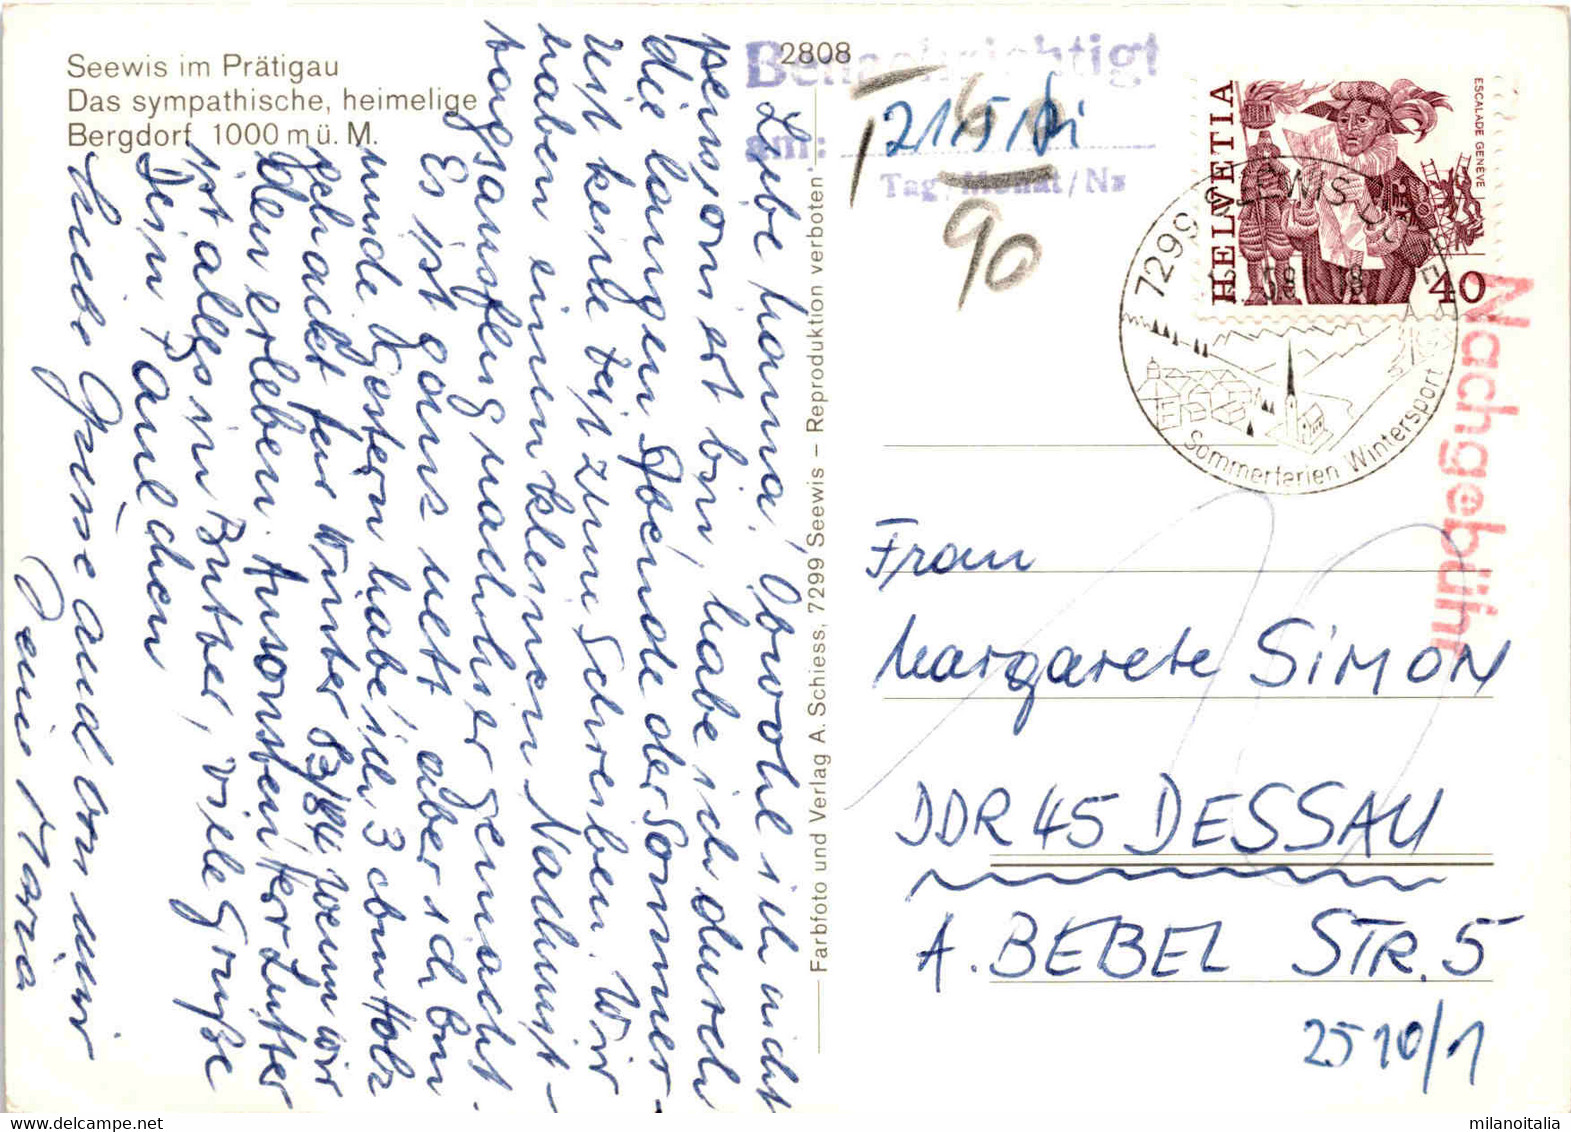 Seewis im Prätigau
Das sympathische, heimelige
Bergdorf, 1000 m ü. M.
2808
Liebe Hanna, Obwohl ich nicht
pensioniert bin, habe ich durch
die langen Abende der Sommer-
zeit keine Zeit zum Schreiben. Wir
haben einen kleinen Nachmit-
tagsausflug nachher gemacht.
Es ist ganz nett aber ich bin
müde. Gestern habe ich 3 cbm Holz
gehackt für Winter 83/84 wenn wir
den erleben. Ansonsten
ist alles in Butter, viele Grüße
Dein Paulchen
Liebe Grüsse auch von mir
Deine Maria
Farbfoto und Verlag A. Schiess, 7299 Seewis – Reproduktion verboten
Benachrichtigt
am: 21/5
Tag/Monat/Nz
T
90
HELVETIA
ESCALADE GENÈVE
40
7299 SEEWIS DORF
Sommerferien Wintersport
Nachgebühr
Frau
Margarete SIMON
DDR 45 DESSAU
A. BEBEL STR. 5
2510/1
milanoitalia